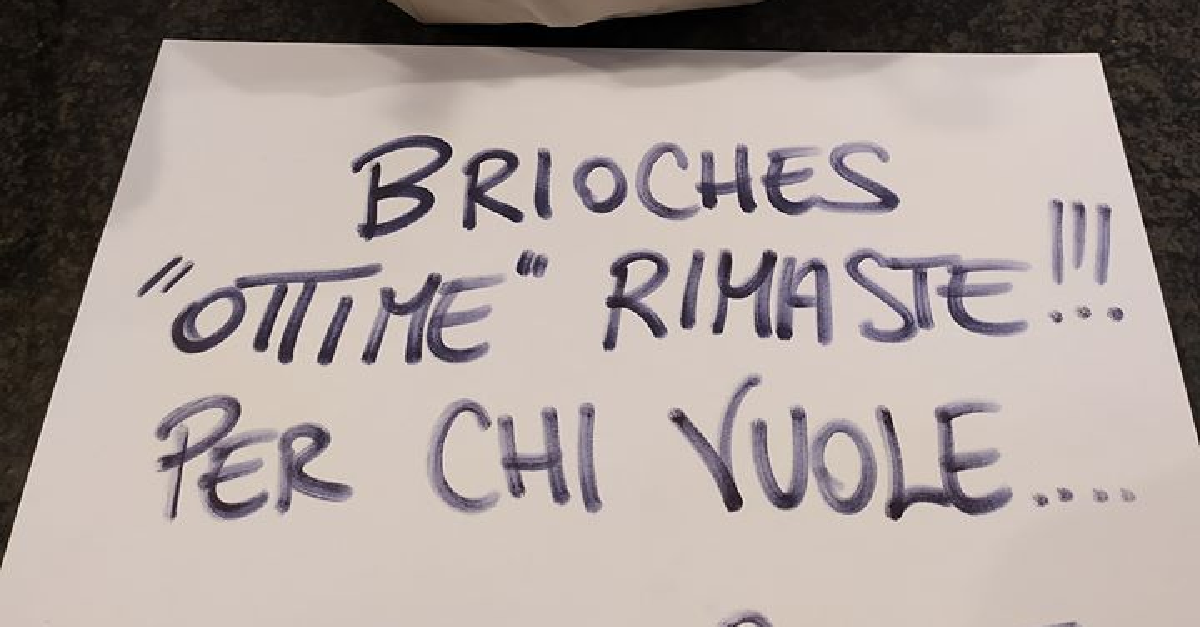 BRIOCHES
"OTTIME" RIMASTE!!!
PER CHI VUOLE....